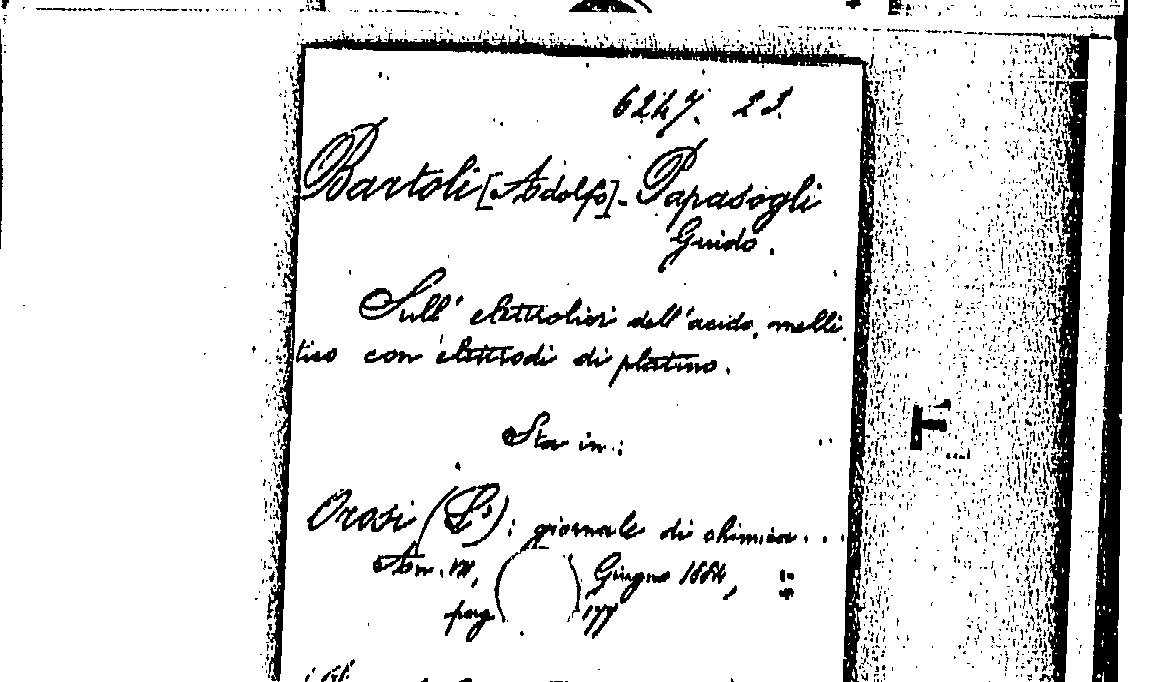 6247. 22.
Bartoli [Adolfo]. Papasogli
Guido.
Sull' elettrolisi dell'acido, melli
tico con elettrodi di platino.
Sta in:
Orosi (L'): giornale di chimica...
Ann. VII, Giugno 1884,
pag 177